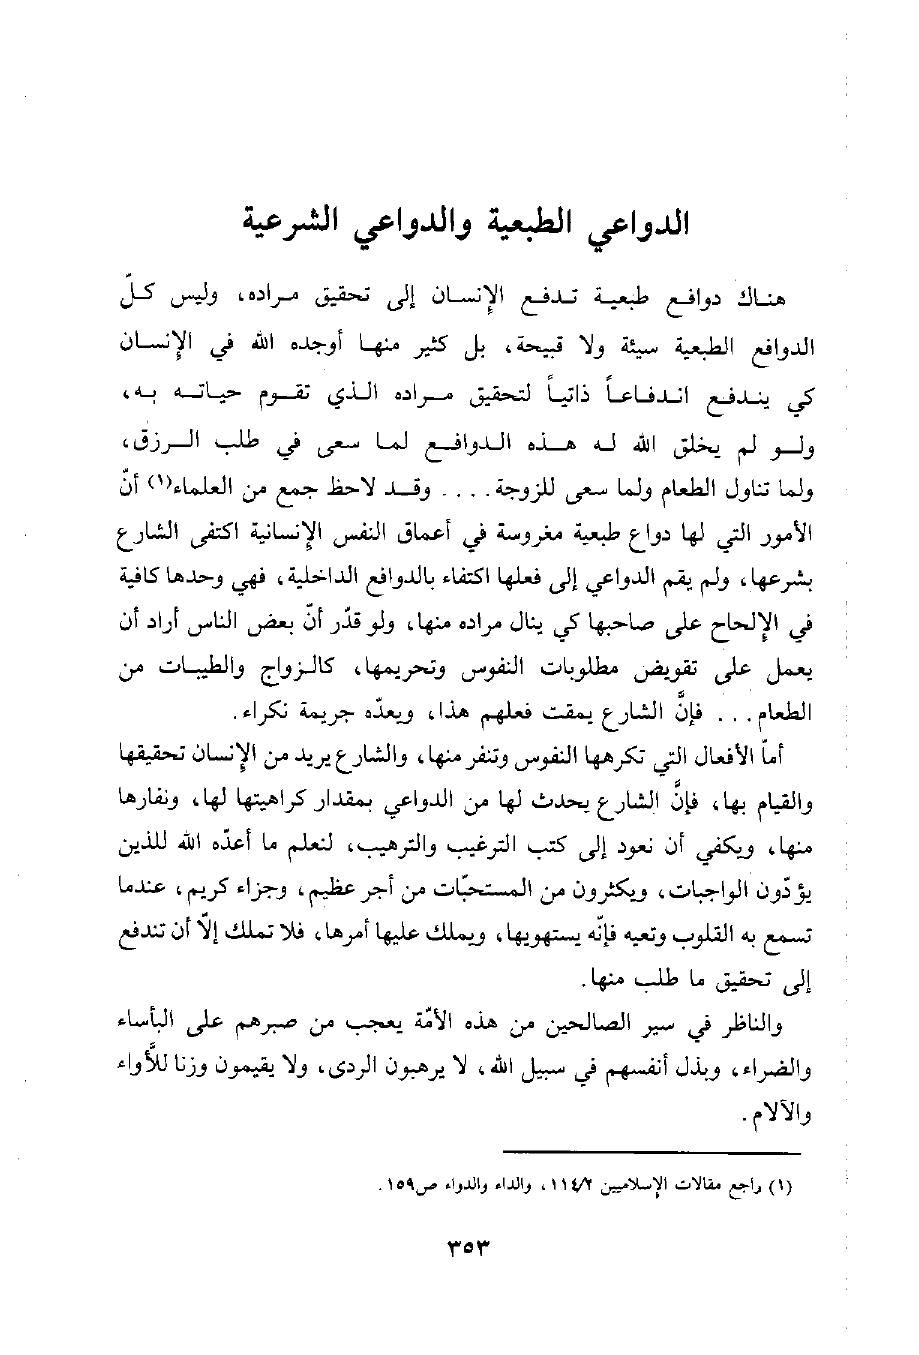 الدواعي الطبعية والدواعي الشرعية
هناك دوافع طبعية تدفع الإنسان إلى تحقيق مراده، وليس كلّ
الدوافع الطبعية سيئة ولا قبيحة، بل كثير منها أوجده الله في الإنسان
كي يندفع اندفاعاً ذاتياً لتحقيق مراده الذي تقوم حياته به،
ولو لم يخلق الله له هذه الدوافع لما سعى في طلب الرزق،
ولما تناول الطعام ولما سعى للزوجة.... وقد لاحظ جمع من العلماء(١) أنّ
الأمور التي لها دواع طبعية مغروسة في أعماق النفس الإنسانية اكتفى الشارع
بشرعها، ولم يقم الدواعي إلى فعلها اكتفاء بالدوافع الداخلية، فهي وحدها كافية
في الإلحاح على صاحبها كي ينال مراده منها، ولو قدّر أنّ بعض الناس أراد أن
يعمل على تقويض مطلوبات النفوس وتحريمها، كالزواج والطيبات من
الطعام... فإنَّ الشارع يمقت فعلهم هذا، ويعدّه جريمة نكراء.
أمّا الأفعال التي تكرهها النفوس وتنفر منها، والشارع يريد من الإنسان تحقيقها
والقيام بها، فإنَّ الشارع يحدث لها من الدواعي بمقدار كراهيتها لها، ونفارها
منها، ويكفي أن نعود إلى كتب الترغيب والترهيب، لنعلم ما أعدّه الله للذين
يؤدّون الواجبات، ويكثرون من المستحبّات من أجر عظيم، وجزاء كريم، عندما
تسمع به القلوب وتعيه فإنّه يستهويها، ويملك عليها أمرها، فلا تملك إلاّ أن تندفع
إلى تحقيق ما طلب منها.
والناظر في سير الصالحين من هذه الأمّة يعجب من صبرهم على البأساء
والضراء، وبذل أنفسهم في سبيل الله، لا يرهبون الردى، ولا يقيمون وزنا للأواء
والآلام.
(١) راجع مقالات الإسلاميين ١١٤/٢، والداء والدواء ص١٥٩.
٣٥٣